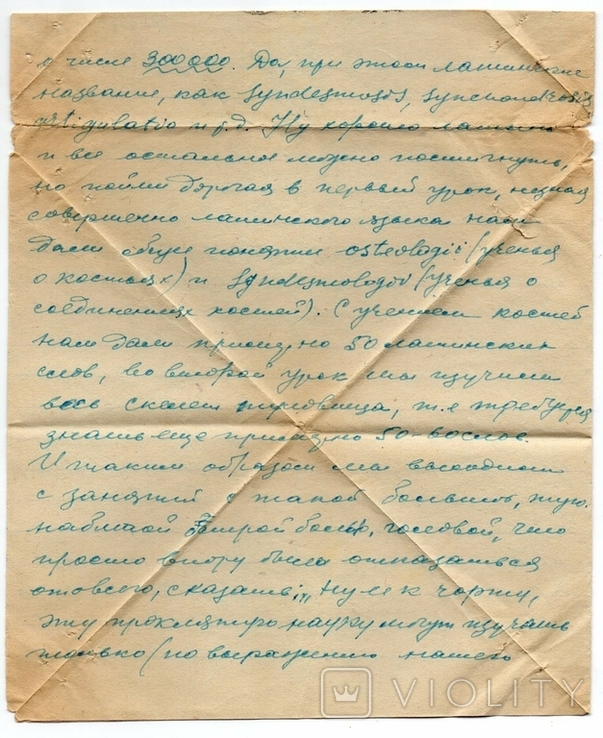 в числе 300000. Да, при этом латинские
название, как Syndesmosis, Synchondrosis
artigulatio и т.д. Ну хорошо латынь
и все остальное можно постигнуть,
но пойми дорогая в первый урок, не зная
совершенно латинского языка нам
дали общие понятия osteologii (ученья
о костьях) и Syndesmologii (ученья о
соединениях костей). С учением костей
нам дали примерно 50 латинских
слов, во второй урок мы изучили
весь скелет туловища, т.е требуется
знать еще примерно 50
И таким образом мы выходим
с занятий с такой большой,
набитой головой, что
просто впору было отказаться
от всего, сказать: "ну ее к чорту,
эту проклятую науку могут изучать
только (по выражению нашего
VIOLITY